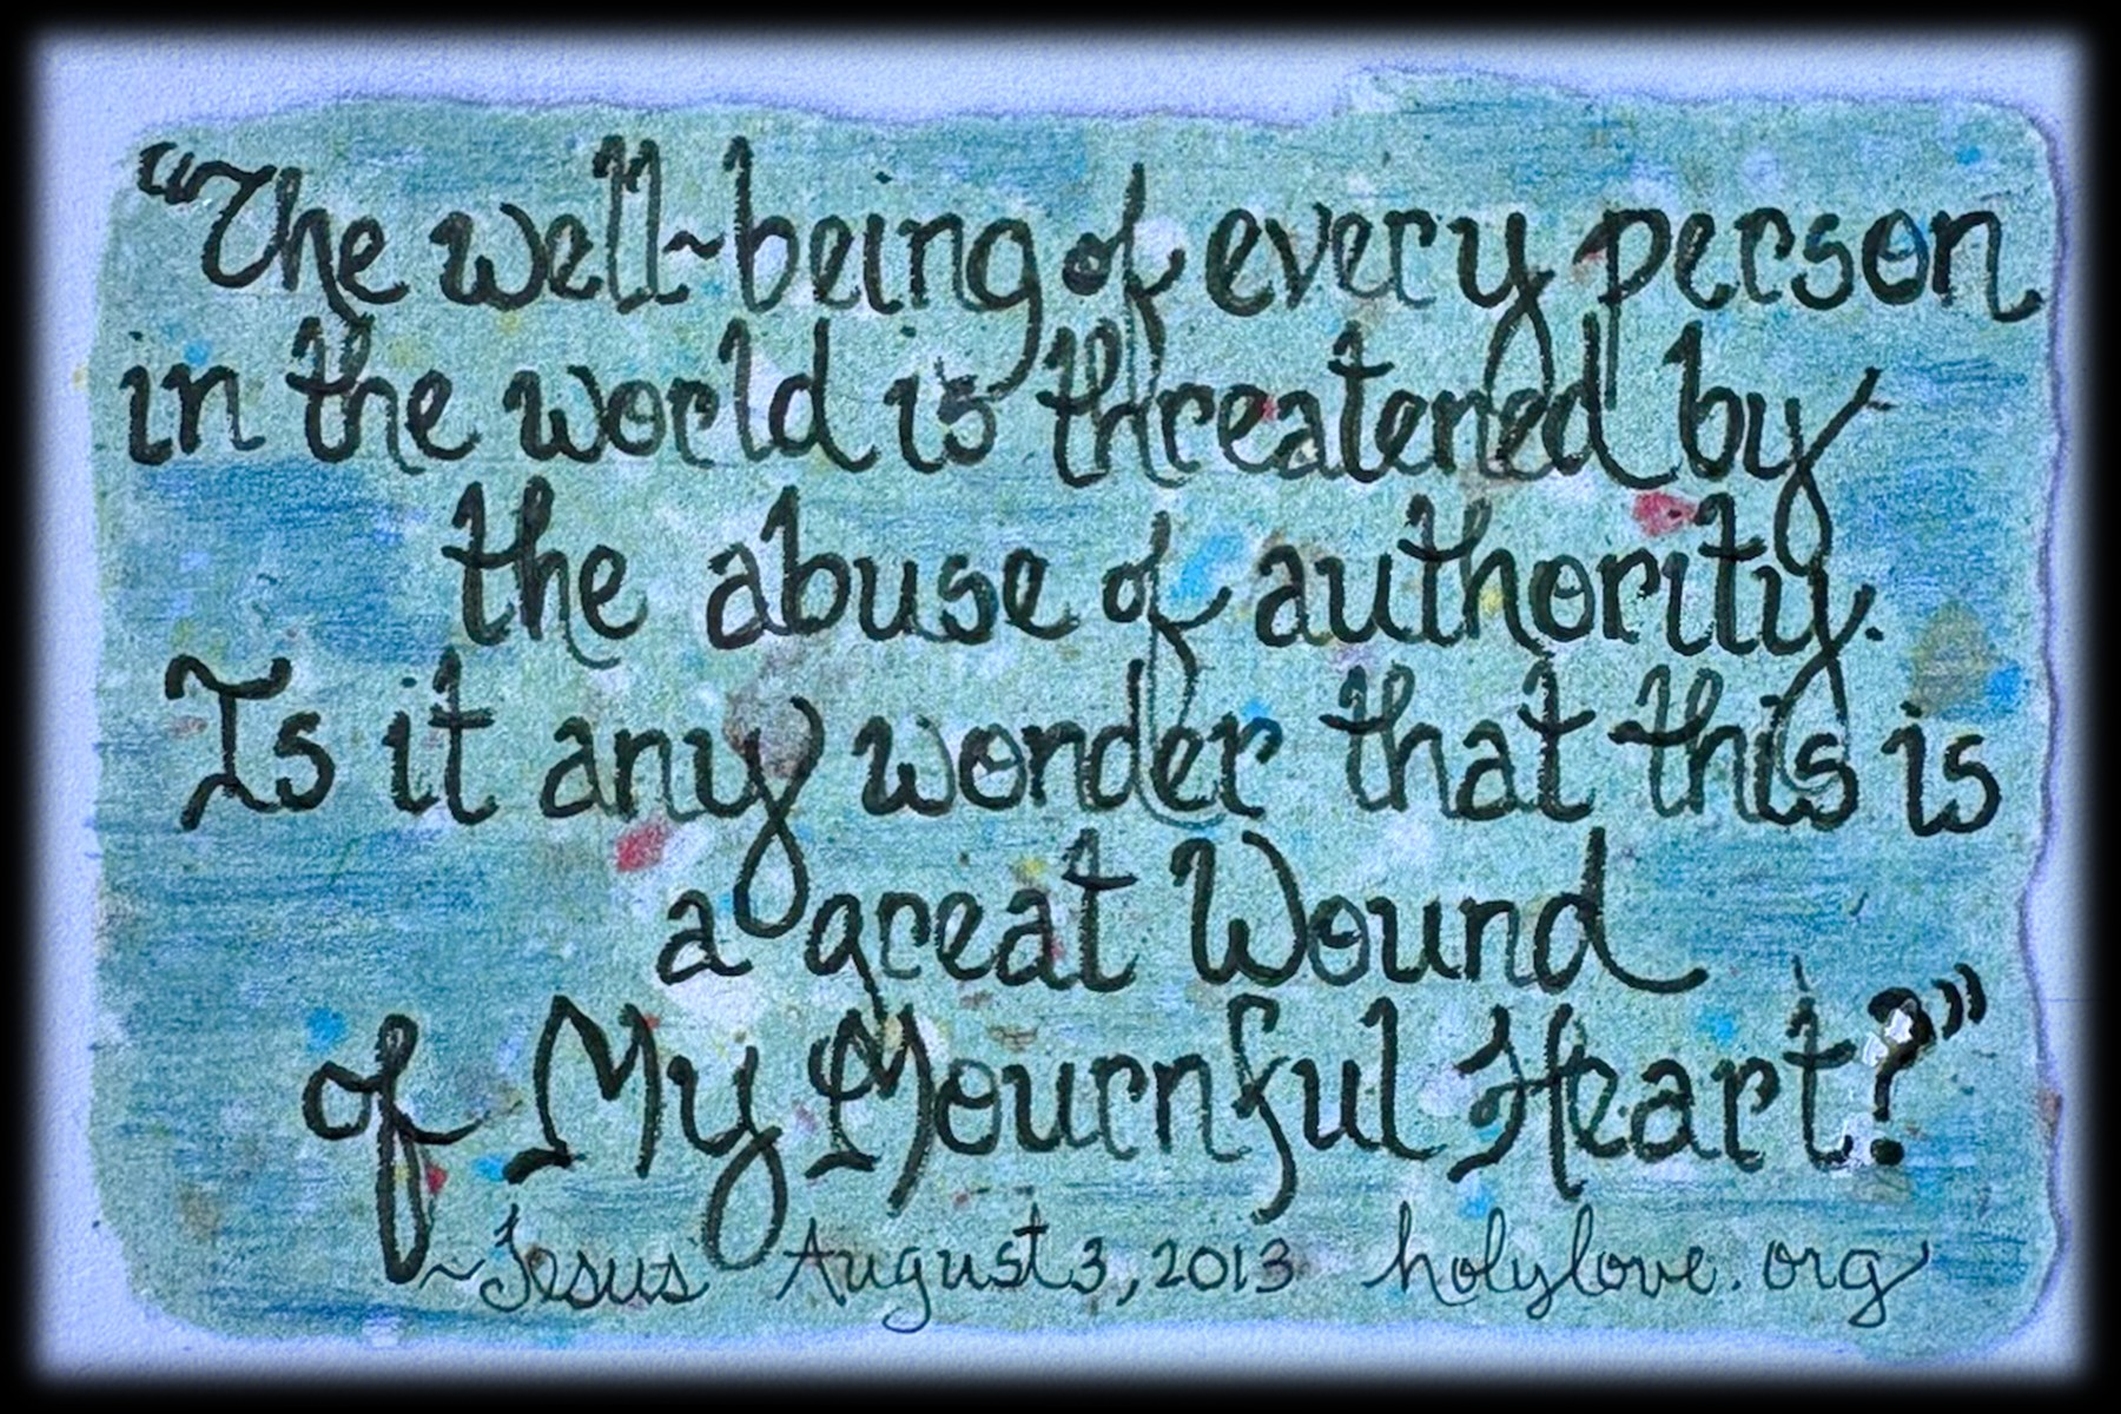 “The well~being of every person
in the world is threatened by
the abuse of authority.
Is it any wonder that this is
a great Wound
of My Mournful Heart?”
~Jesus August 3, 2013 holylove.org